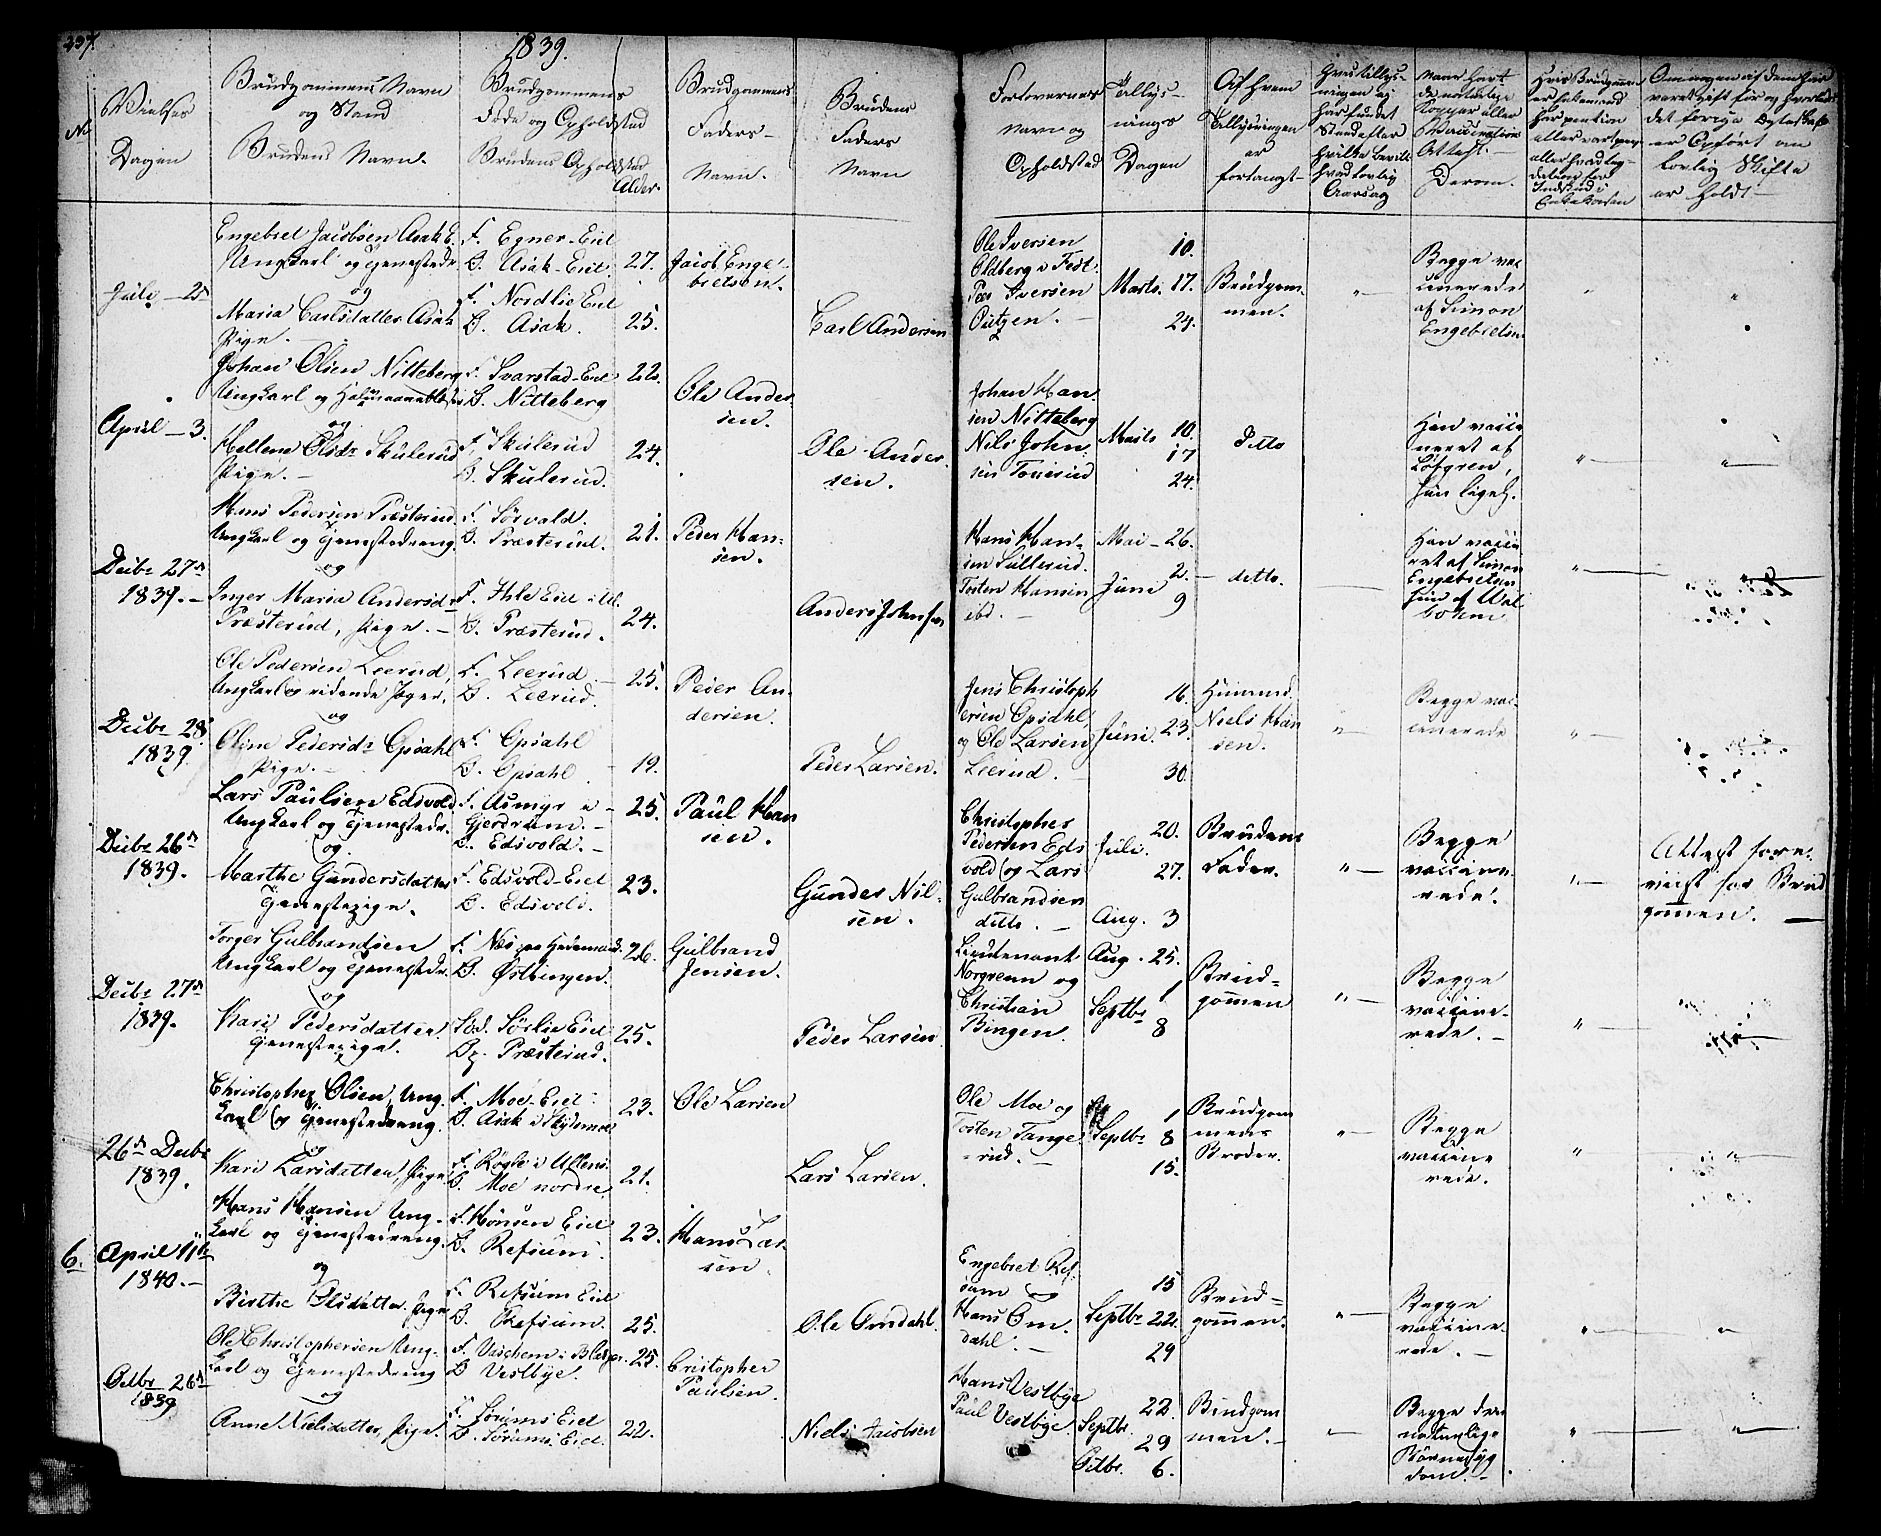 1839.
No
Vielses
Dagen
Brudgommens Navn
og Stand
Brudens Navn.
Brudgommens
Føde og Opholdsted
Brudens Opholdsted
Alder.
Brudgommens
Faders
Navn.
Brudens
Faders
Navn
Forlovernes
Navn og
Opholdsted
Tillys-
nings
Dagen
Af hvem
Tillysningen
er
forlangt
Om nogen af dem har
været gift før og hvorledes
er Opført om
lovlig Skifte
er holdt
Juli 25
Engebret Jacobsen Asak E.
Ungkarl og Tjenestedr.
og
Maria Carlsdatter Asak
Pige.
F. Egner-Eie
B. Asak-Eie
F. Nordlie Eie
B. Asak.
27.
25.
Jacob Enge-
bretsen.
Carl Andersen
Ole Iversen
Oldberg i Fedt
Peer Iversen
10.
Marts. 17.
24.
Brudgom-
men.
Begge vac-
cinerede
af Simon
Engebretsen
April 3.
Johan Olsen Nitteberg
Ungkarl og
og
Hellene Olsdr Skulerud
Pige.
F. Svarstad-Eie
B. Nitteberg
F. Skulerud
B. Skulerud.
22.
24.
Ole Ander-
sen.
Ole Ander-
sen.
Johan Han-
sen Nitteberg
Nils John-
sen
Marts 10.
17
24.
Ditto
Han vacci-
neret af
Løfgren,
hun ligel.
Decbr 27de
1839.
Hans Pedersen Præsterud
Ungkarl og Tjenestedreng.
og
Inger Maria Andersdr
Præsterud, Pige.
F. Sørvald.
B. Præsterud.
F. Ihle Eie i Ul.
B. Præsterud.
21.
24.
Peder Han-
sen.
Anders Johnsen
Hans Han-
sen Sullerud.
Tosten Hansen
ibd.
Mai 26.
Juni 2.
9
ditto.
Han vacci-
ret af Simon
Engebretsen
hun af Wal-
bohm
Decbr 28
1839.
Ole Pedersen Leerud,
Ungkarl og ridende Jæger,
og
Oline Pedersdr Opsahl
Pige.
F. Leerud.
B. Leerud.
F. Opsahl
B. Opsahl
25.
19.
Peder An-
dersen.
Peder Larsen.
Jens Christoph
ersen Opsahl,
og Ole Larsen
Leerud.
16.
Juni. 23.
30.
Niels Han
sen.
Begge vac-
cinerede
Decbr 26de
1839.
Lars Paulsen Edsvold
Ungkarl og Tjenestedr.
og
Marthe Gundersdatter
Tjenestepige.
F. Asmyr i
Gjerdrum.
B. Edsvold.
F. Edsvold-Eiet
B. Edsvold.
25.
23.
Paul Han
sen.
Gunder Nil-
sen.
Christopher
Pedersen Eds
vold og Lars
Gulbrandsen
ditto.
20.
Juli.
27.
Aug. 3
Brudens
Fader.
Begge
vaccine-
rede.
Attest fore-
viist for Brud
gommen.
Decbr 27de
1839.
Torger Gulbrandsen
Ungkarl og Tjenestedr.
og
Kari Pedersdatter
Tjenestepige.
F. Næs paa Hedemark.
B. Østbingen.
Fød. Sørlie Eiet
B. Præsterud.
26.
25.
Gulbrand
Jensen.
Peder Larsen
Lieutenant
Norgrenn og
Christian
Bingen.
Aug. 25.
Septbr 1
8
Brud-
gommen
Begge
vaccine-
rede.
26de Decbr
1839.
Christopher Olsen, Ung-
karl og Tjenestedreng.
og
Kari Larsdatter, Pige
F. Moe-Eiet
B. Asak i Skedsmoe
F. Røgle i Ullens.
B. Moe nordre
23.
21.
Ole Larsen
Lars Larsen.
Ole Moe og
Tosten Tange-
rud.
1
Septbr 8
15.
Brudgom
mens
Broder.
Begge
vaccine
rede.
6.
April 11te
1840.
Hans Hansen Ung-
karl og Tjenestedreng.
og
Birthe Olsdatter. Pige
F. Hønsen Eiet
B. Refsum.
F. Refsum Eiet
B. Refsum.
23.
25.
Hans Lar-
sen.
Ole Omdahl.
Engebret Ref-
sum og
Hans Om-
dahl.
15
Septbr 22
29
Brud-
gommen.
Begge
vaccine-
rede.
Octbr 26de
1839
Ole Christophersen Ung-
karl og Tjenestedreng
og
Anne Nielsdatter, Pige.
B. Vestbye.
F. Sørums Eiet
B. Sørums. Eiet.
25.
22.
Cristopher
Paulsen.
Niels Jacobsen
Hans Vestbye
Paul Vestbye.
22.
Septbr.
29
Octbr. 6.
Brudgom
men.
Begge den
naturlige
Børnesyg
dom.